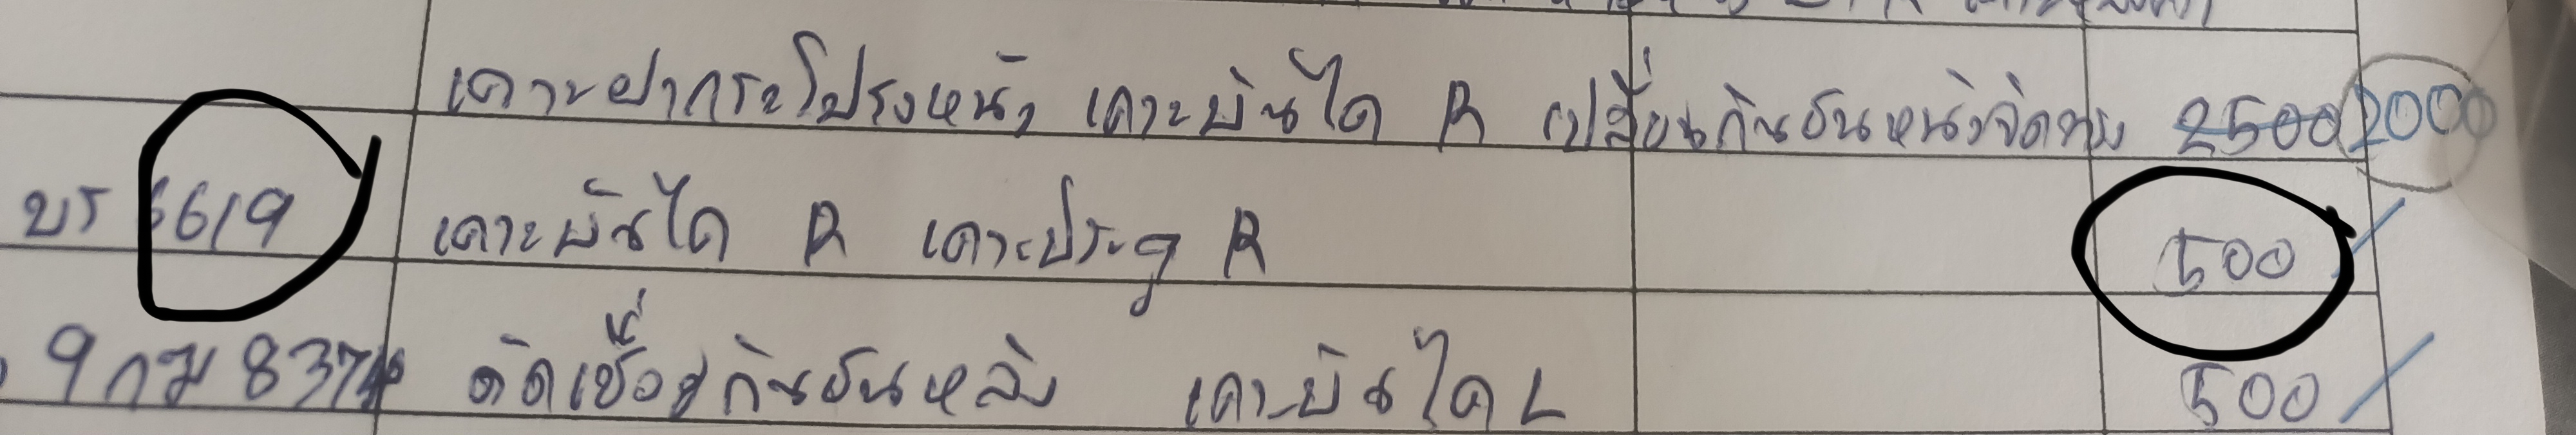 เคาะฝากระโปรงหน้า เคาะบันได R เปลี่ยนกันชนหน้าจัดทรง 2500 2000
บร 6619 เคาะบันได R เคาะประตู R 500
9กม 8374 ตัดเชื่อมกันชนหลัง เคาะบันได L 500